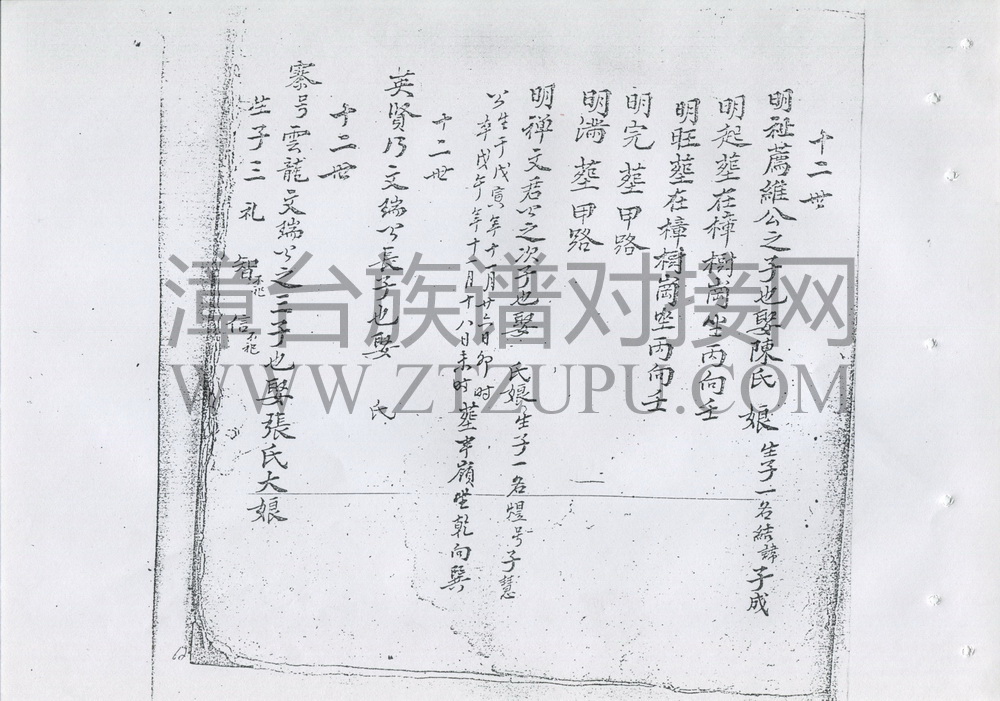 十二世
明祉薦維公之子也娶陳氏 娘生子一名結諱子成
明起塟在樟樹崗坐丙向壬
明旺塟在樟樹崗坐丙向壬
明完 塟甲路
明滿 塟甲路
明禅文君公之次子也娶 氏娘生子一名煋号子慧
公生于戊寅年十一月廿六日卯时
卒戊午年十二月十八日未时塟岽嶺坐乾向巽
十二世
英賢乃文端公長子也娶 氏
十二世
寨号雲龍文端公之三子也娶張氏大娘
生子三 礼 智不祀 信不祀
漳台族谱对接网
WWW.ZTZUPU.COM